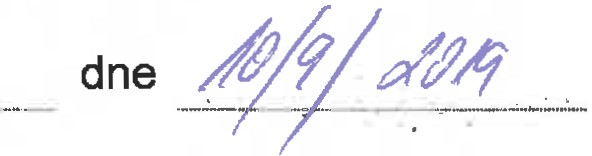 dne 10/9/2019